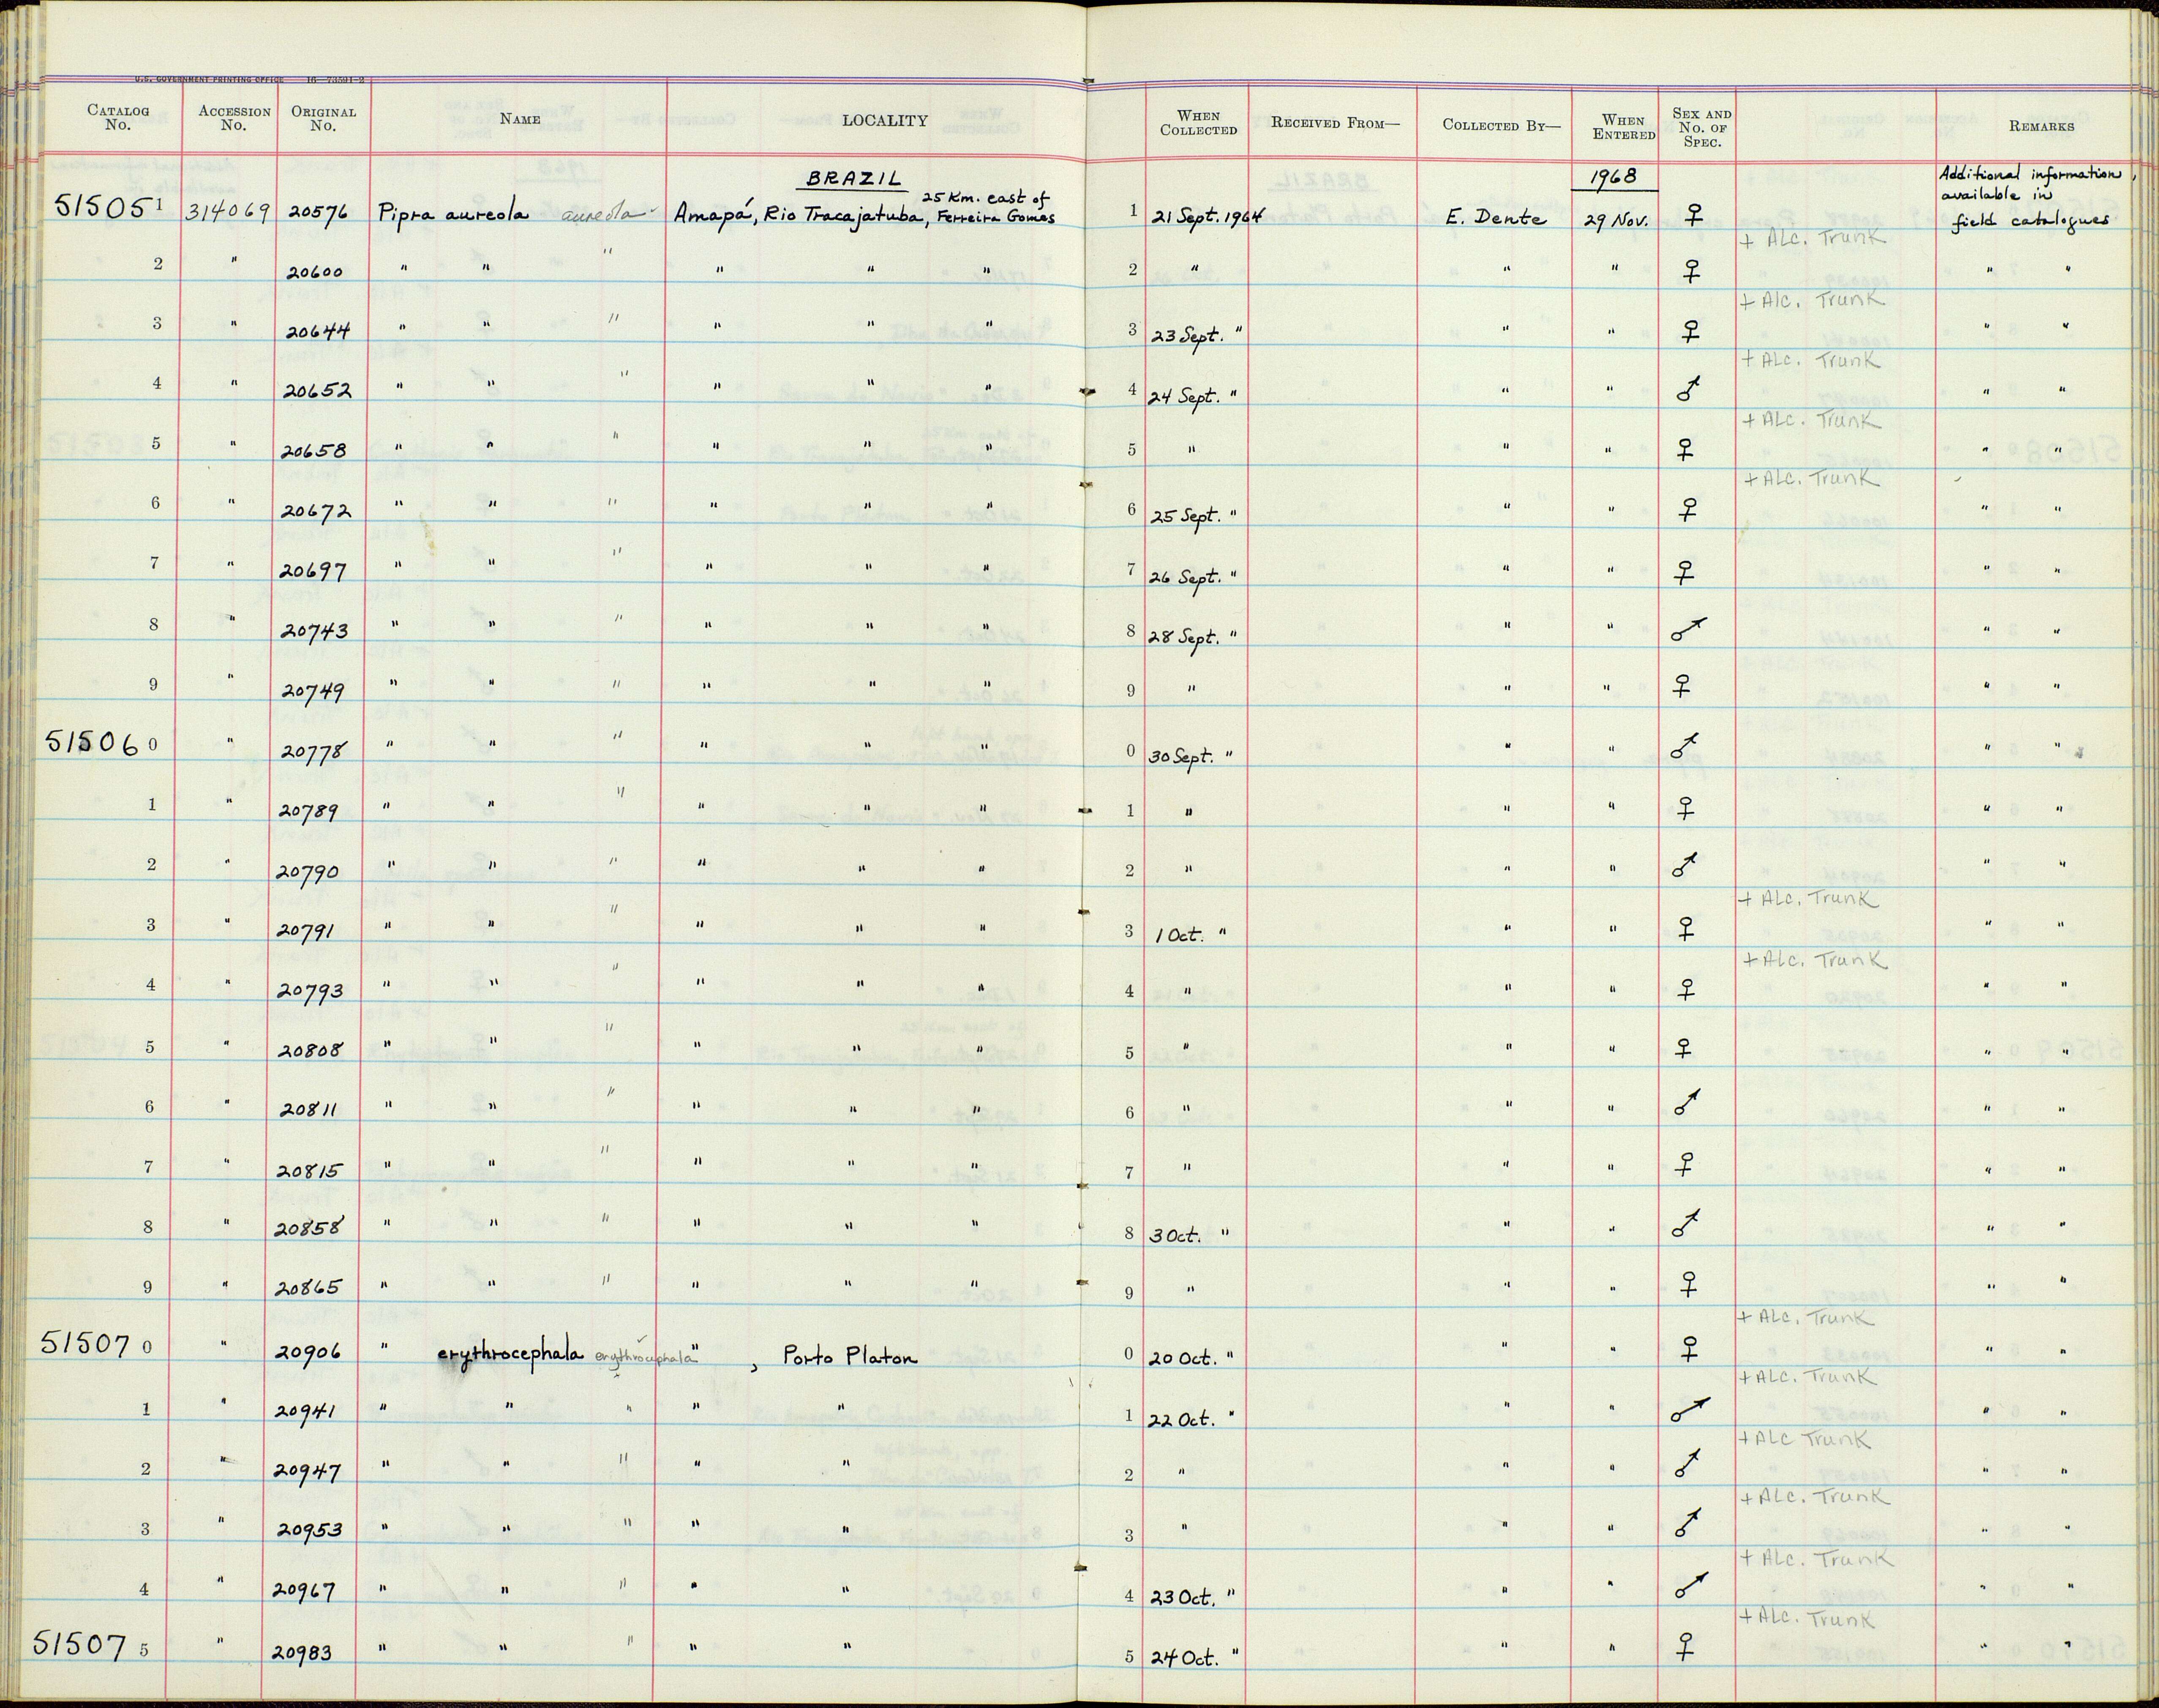 U.S. GOVERNMENT PRINTING OFFICE 16—73591-2
CATALOG No. ACCESSION No. ORIGINAL No. NAME LOCALITY WHEN COLLECTED RECEIVED FROM— COLLECTED BY— WHEN ENTERED SEX AND No. OF SPEC. REMARKS
BRAZIL 1968 Additional information,
515051 314069 20576 Pipra aureola aureola Amapá, Rio Tracajatuba, 25 Km. east of Ferreira Gomes 1 21 Sept. 1964 E. Dente 29 Nov. ♀ available in field catalogues
2 " 20600 " " " " " " 2 " " " ♀ + Alc. Trunk " "
3 " 20644 " " " " " " 3 23 Sept. " " " ♀ + Alc. Trunk " "
4 " 20652 " " " " " " 4 24 Sept. " " " ♂ + Alc. Trunk " "
5 " 20658 " " " " " " 5 " " " ♀ + Alc. Trunk " "
6 " 20672 " " " " " " 6 25 Sept. " " " ♀ + Alc. Trunk " "
7 " 20697 " " " " " " 7 26 Sept. " " " ♀ " "
8 " 20743 " " " " " " 8 28 Sept. " " " ♂ " "
9 " 20749 " " " " " " 9 " " " ♀ " "
515060 " 20778 " " " " " " 0 30 Sept. " " " ♂ " "
1 " 20789 " " " " " " 1 " " " ♀ " "
2 " 20790 " " " " " " 2 " " " ♂ " "
3 " 20791 " " " " " " 3 1 Oct. " " " ♀ + Alc. Trunk " "
4 " 20793 " " " " " " 4 " " " ♀ + Alc. Trunk " "
5 " 20808 " " " " " " 5 " " " ♀ " "
6 " 20811 " " " " " " 6 " " " ♂ " "
7 " 20815 " " " " " " 7 " " " ♀ " "
8 " 20858 " " " " " " 8 3 Oct. " " " ♂ " "
9 " 20865 " " " " " " 9 " " " ♀ " "
515070 " 20906 " erythrocephala erythrocephala " , Porto Platon 0 20 Oct. " " " ♀ + Alc. Trunk " "
1 " 20941 " " " " " 1 22 Oct. " " " ♂ + Alc. Trunk " "
2 " 20947 " " " " " 2 " " " ♂ + Alc Trunk " "
3 " 20953 " " " " " 3 " " " ♂ + Alc. Trunk " "
4 " 20967 " " " " " 4 23 Oct. " " " ♂ + Alc. Trunk " "
515075 " 20983 " " " " " 5 24 Oct. " " " ♀ + Alc. Trunk " "